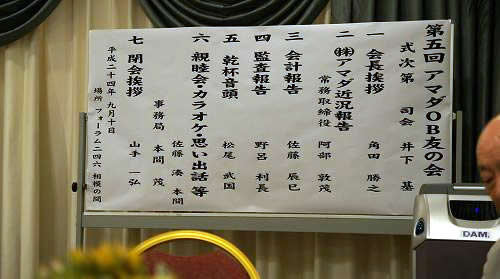 第五回 アマダOB友の会
式次第 司会 井下 基
一 会長挨拶 角田 勝之
二 ㈱アマダ近況報告
常務取締役 阿部 敦茂
三 会計報告 佐藤 辰巳
四 監査報告 野呂 利長
五 乾杯音頭 松尾 武国
六 親睦会・カラオケ・思い出話 等
佐藤 湊 本間
事務局 本間 茂
七 閉会挨拶 山手 一弘
平成二十四年 九月十日
場所 フォーラム二四六 相模の間
DAM